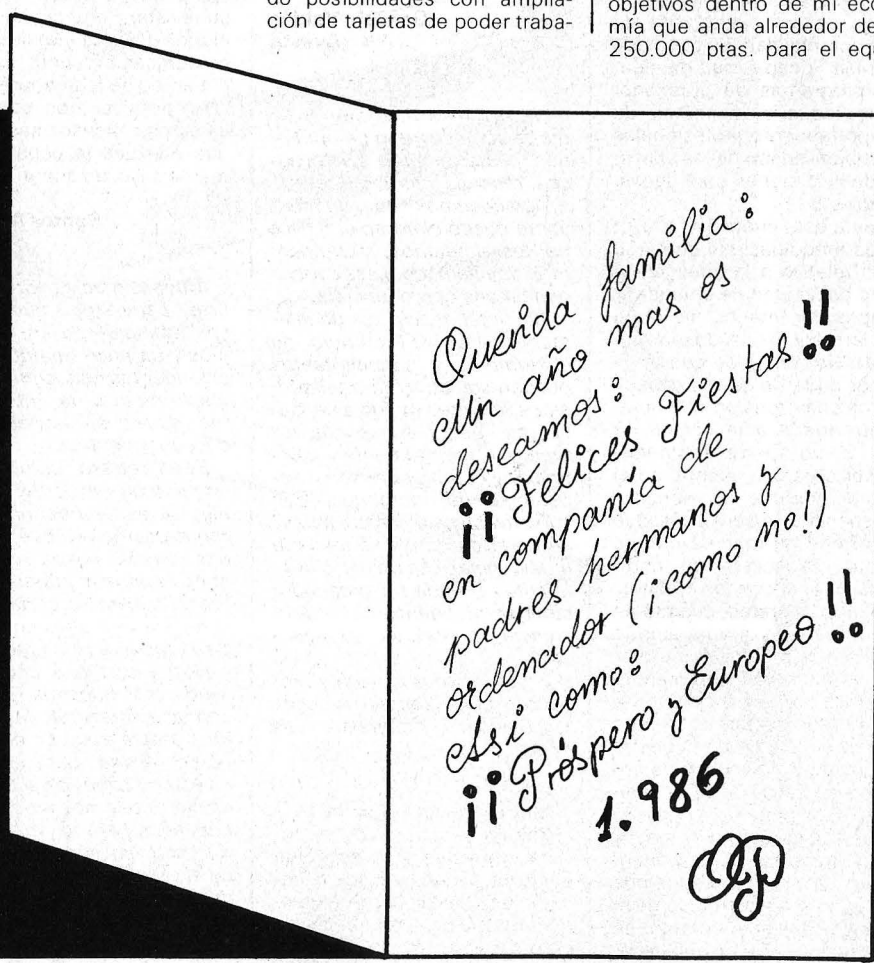 do posibilidades con amplia-
ción de tarjetas de poder traba-
objetivos dentro de mi eco
mía que anda alrededor de
250.000 ptas. para el equ
Querida familia:
Un año mas os
deseamos:
¡¡Felices Fiestas!!
en compañía de
padres hermanos y
ordenador (¡como no!)
Asi como:
¡¡Próspero y Europeo!!
1.986